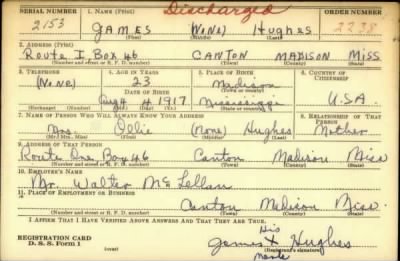 SERIAL NUMBER 1. NAME (Print) Discharged ORDER NUMBER
2153 JAMES (NONE) Hughes 2238
(First) (Middle) (Last)
2. ADDRESS (Print)
Route I Box 46 CANTON MADISON MISS
(Number and street or R. F. D. number) (Town) (County) (State)
3. TELEPHONE 4. AGE IN YEARS 5. PLACE OF BIRTH 6. COUNTRY OF CITIZENSHIP
(NONE) 23 Madison
DATE OF BIRTH (Town or county)
Aug 4 1917 Mississippi U.S.A.
(Exchange) (Number) (Mo.) (Day) (Yr.) (State or country)
7. NAME OF PERSON WHO WILL ALWAYS KNOW YOUR ADDRESS 8. RELATIONSHIP OF THAT PERSON
Mrs. Ollie (None) Hughes Mother
(Mr., Mrs., Miss) (First) (Middle) (Last)
9. ADDRESS OF THAT PERSON
Route One, Box 46 Canton Madison Miss
(Number and street or R. F. D. number) (Town) (County) (State)
10. EMPLOYER'S NAME
Mr. Walter McLellan
11. PLACE OF EMPLOYMENT OR BUSINESS
Canton Madison Miss.
(Number and street or R. F. D. number) (Town) (County) (State)
I AFFIRM THAT I HAVE VERIFIED ABOVE ANSWERS AND THAT THEY ARE TRUE.
His
REGISTRATION CARD James X Hughes
D. S. S. Form 1 (over) Mark (Registrant's signature)